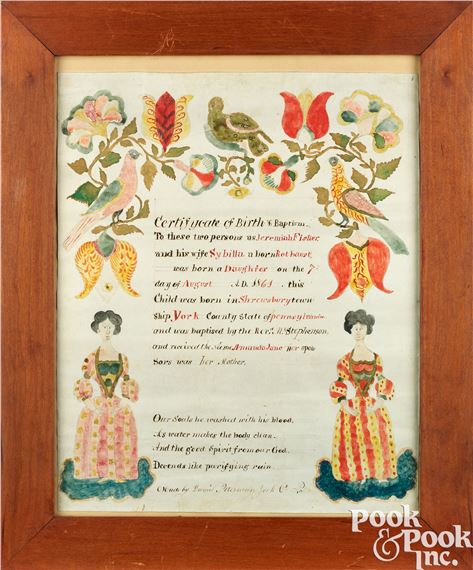 Certifycate of Birth & Baptism.
To these two persons as Jeremiah Fisher
and his wife Sybilla a born
was born a Daughter on the 7
day of August A.D. 1861 this
Child was born in Shrewsbury town
ship York County State of pennsylvania
and was baptised by the Rev. Stephenson
and received the name Amanda Jane her spon
Sors was her Mother.
Our Souls he washed with his blood,
As water makes the body clean.
And the good Spirit from our God.
Decends like purifying rain.
Made by Daniel Peterman York Co
Pook
& Pook
Inc.